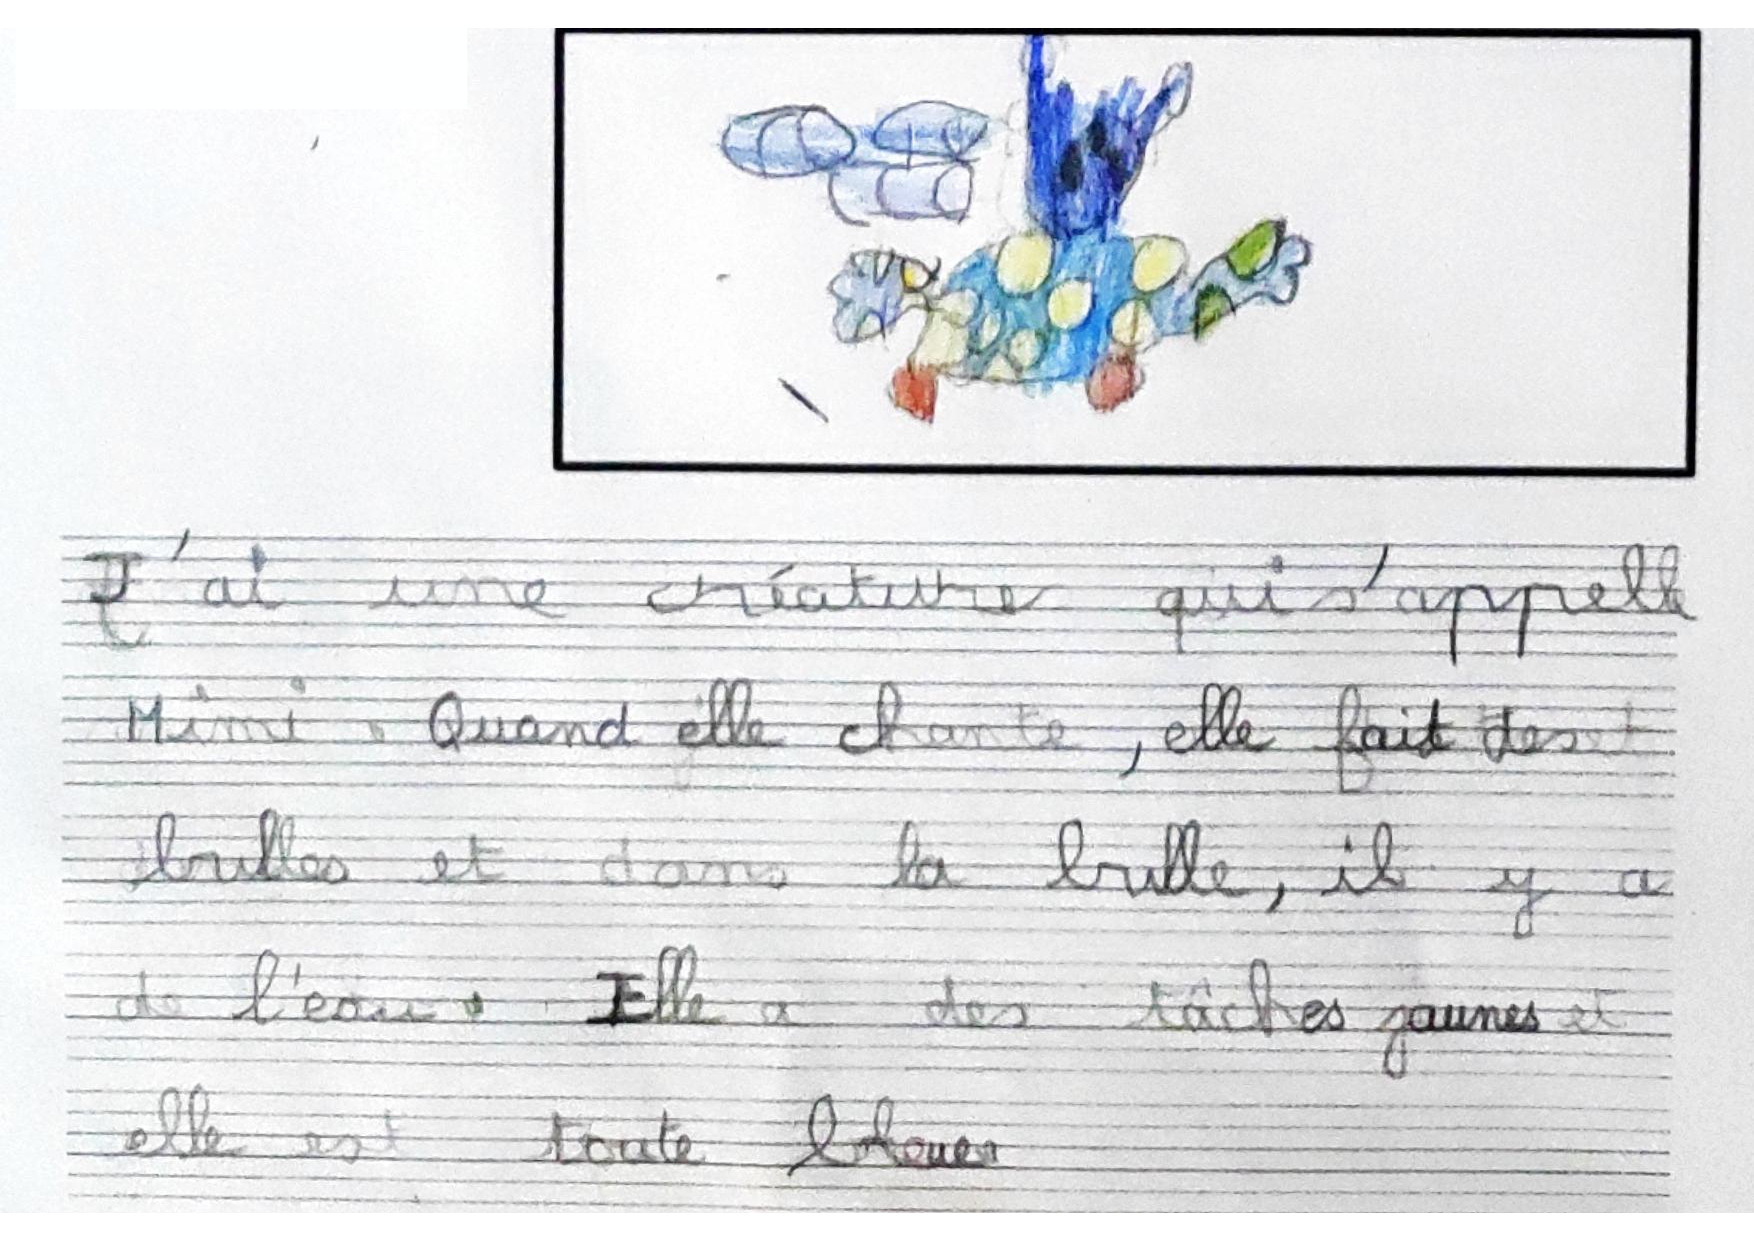 J'ai une créature qui s'appelle
Mimi. Quand elle chante, elle fait des
bulles et dans la bulle, il y a
de l'eau. Elle a des tâches jaunes et
elle est toute